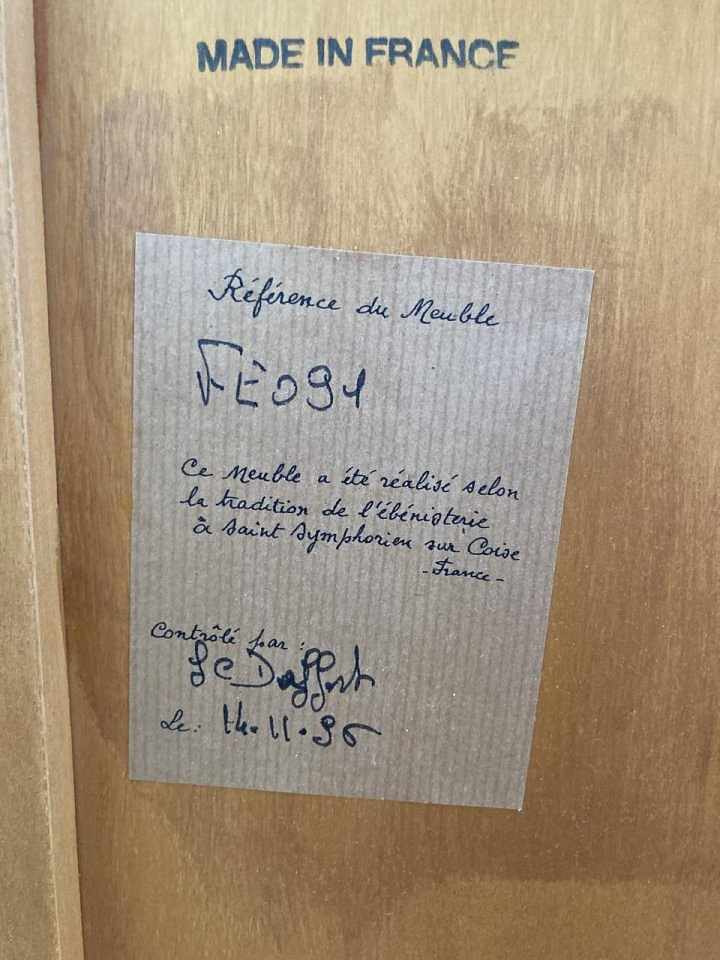 MADE IN FRANCE
Référence du Meuble
FE091
Ce Meuble a été réalisé selon
la tradition de l'ébénisterie
à Saint Symphorien sur Coise
-France-
Contrôlé par :
Le: 14.11.96